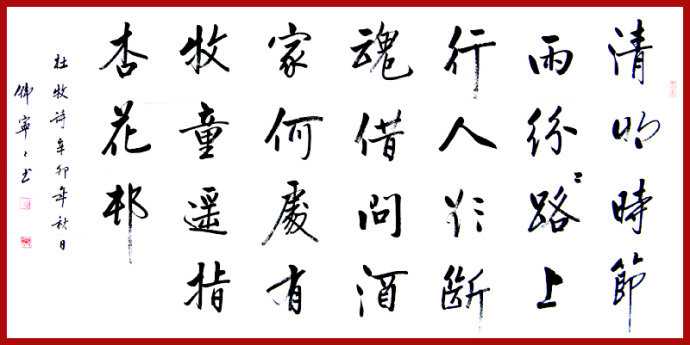 清明時節
雨紛〻路上
行人欲斷
魂借問酒
家何處有
牧童遥指
杏花邨
杜牧詩辛卯年秋日
寧